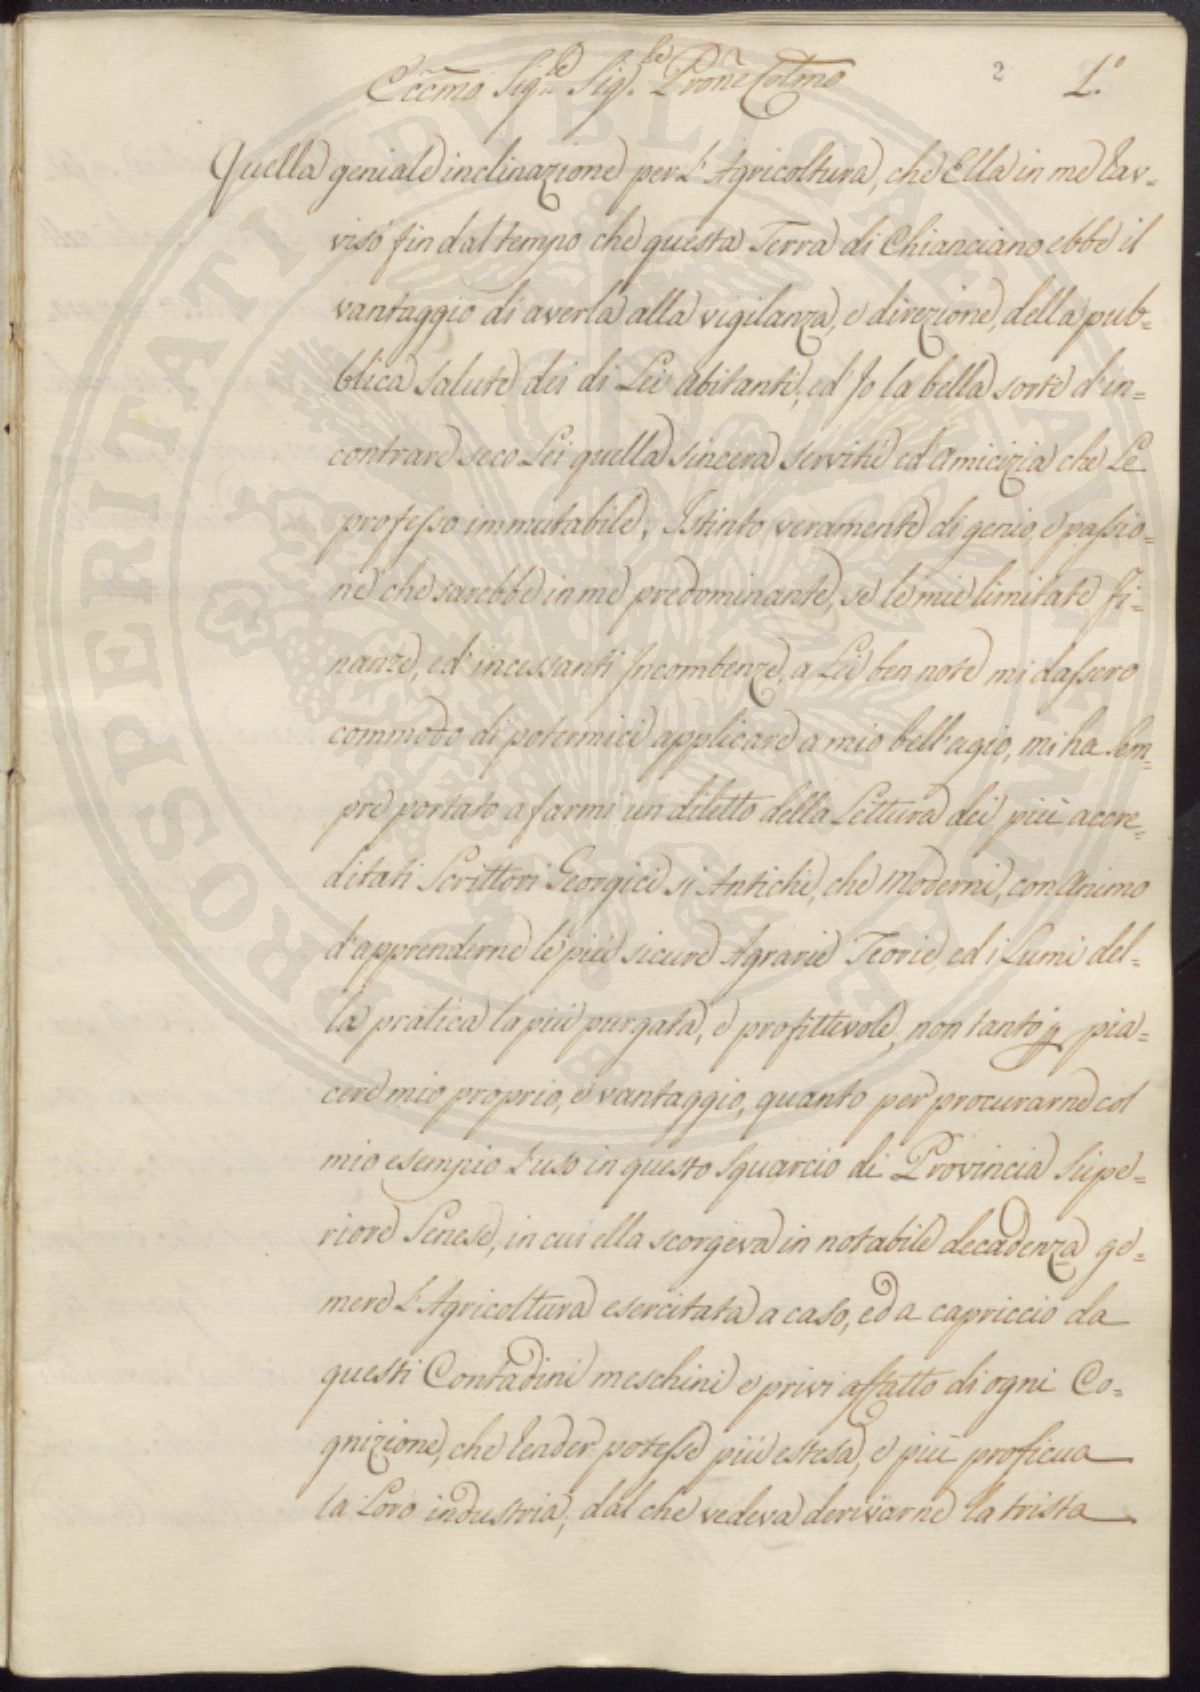 2 1.º
Eccmo Sig.re Sig.re Prone Colmo
Quella geniale inclinazione per l'Agricoltura, che Ella in me rav=
visò fin dal tempo che questa Terra di Chianciano ebbe il
vantaggio di averla alla vigilanza, e direzione, della pub=
blica salute dei di Lei abitanti, ed Jo la bella sorte d'in=
contrare seco Lei quella sincera servitù ed' amicizia che Le
professo immutabile; Istinto veramente di genio, e passio=
ne che sarebbe in me predominante, se le mie limitate fi=
nanze, ed' incessanti Incombenze, a Lei ben note mi dassero
commodo di potermici applicare a mio bell'agio, mi ha sem=
pre portato a farmi un diletto della Lettura dei più accre=
ditati Scrittori Georgici sì Antichi, che Moderni, con animo
d'apprenderne le più sicure Agrarie Teorie, ed i Lumi del=
la pratica la più purgata, e profittevole, non tanto p pia=
cere mio proprio, e vantaggio, quanto per procurarne col
mio esempio l'uso in questo Squarcio di Provincia Supe=
riore Senese, in cui ella scorgeva in notabile decadenza ge=
mere l'Agricoltura esercitata a caso, ed a capriccio da
questi Contadini meschini e privi affatto di ogni Co=
gnizione, che render potesse più estesa, e più proficua
la Loro industria; dal che vedeva derivarne la trista
PROSPERITATI PUBLICAE AUGENDAE